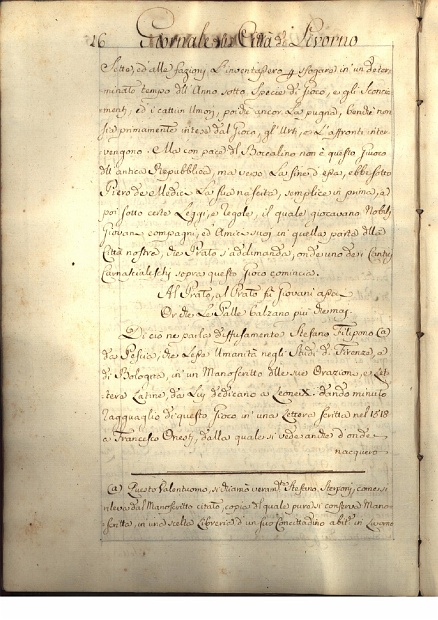 26 Giornale di Città di Livorno
Sette, ed alle fazioni, l'inventassero p. sfogare in un deter
minato tempo dell'Anno sotto Specie di Gioco, e gli Sconcer
menti, ed i cattivi Umori, poiche ancor La pugna, benche non
sia primamente intesa dal Gioco, gl'Urti, e L'affronti inter
vengono. Ma con pace del Boccalino non è questo Giuoco
dell'antica Repubblica, ma verso La fine d'essa, e bbe sotto
Piero de Medici La sua nascita, semplice in prima, e
poi sotto certe Leggi, e regole, il quale giocavano Nobili
Giovani compagni, ed Amici suoi in quella parte della
Città nostra, che Prato s'addimanda, onde uno dei Canti
Carnascialeschi sopra questo Gioco comincia.
Al Prato, al Prato su Giovani
Or che Le Palle balzano più che mai.
Di ciò ne parla diffusamente Stefano Filipono (a
da Pescia, che Lesse Umanità negli Studi di Firenze, e
di Bologna, in un Manoscritto delle sue Orazioni, e Let
tere Latine, da Lui dedicato a Leone X. dando minuto
ragguaglio di questo Gioco in una Lettera scritta nel 1518
a Francesco Onesti, dalla quale si vede anche d'onde
nacquero
(a Questo Valentuomo, si chiamò veram.te Stefano Sterponi, come si
rileva dal Manoscritto citato, copia del quale pure si conserva Mano-
scritta, in una scelta Libreria d'un suo Concittadino abit. in Livorno